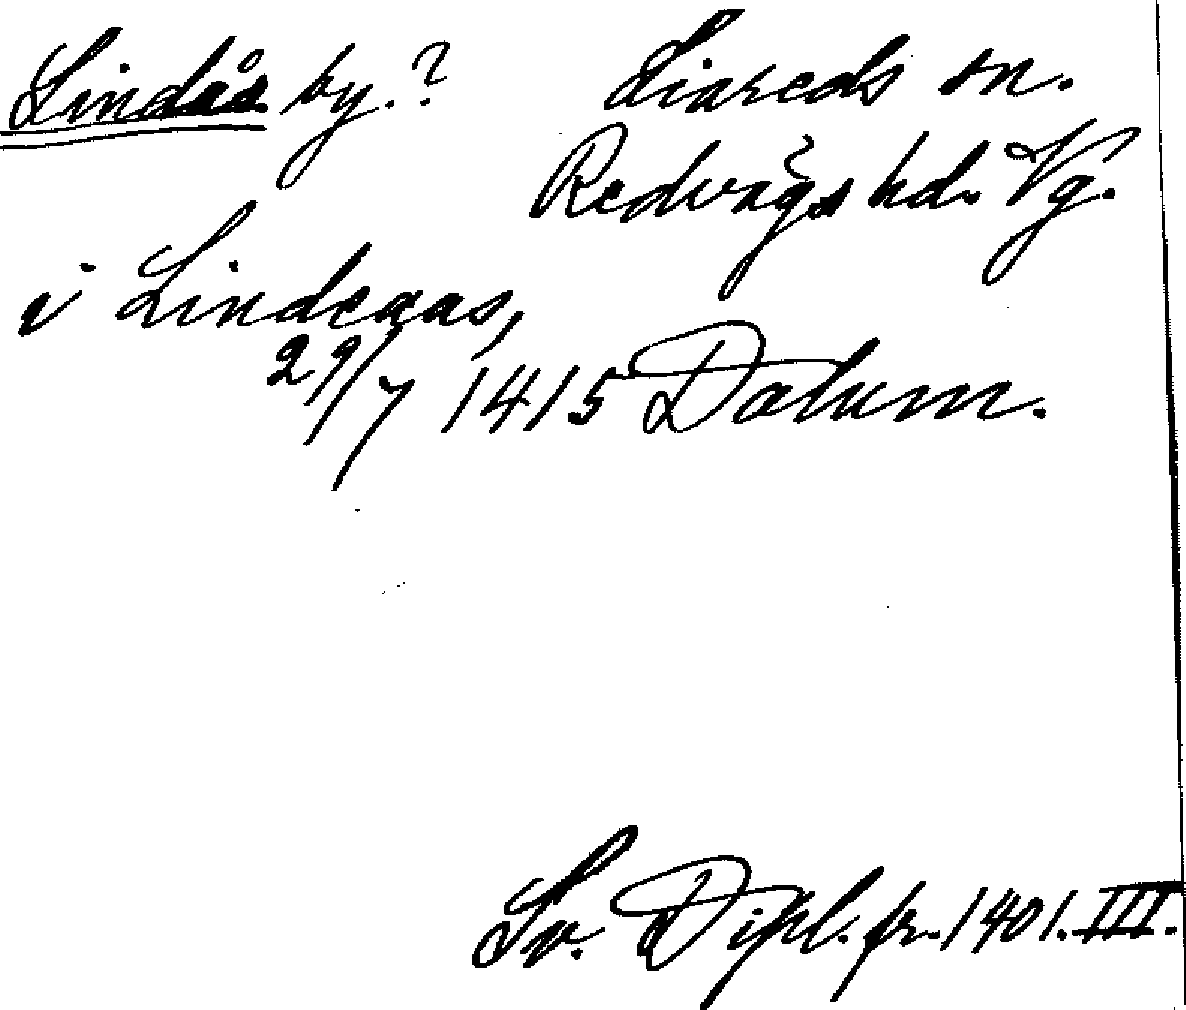 Lindås by.? Liareds sn.
Redvägs hd. Vg.
i Lindeaas,
29/7 1415 Dalum.
Sv. Dipl. fr. 1401. III.